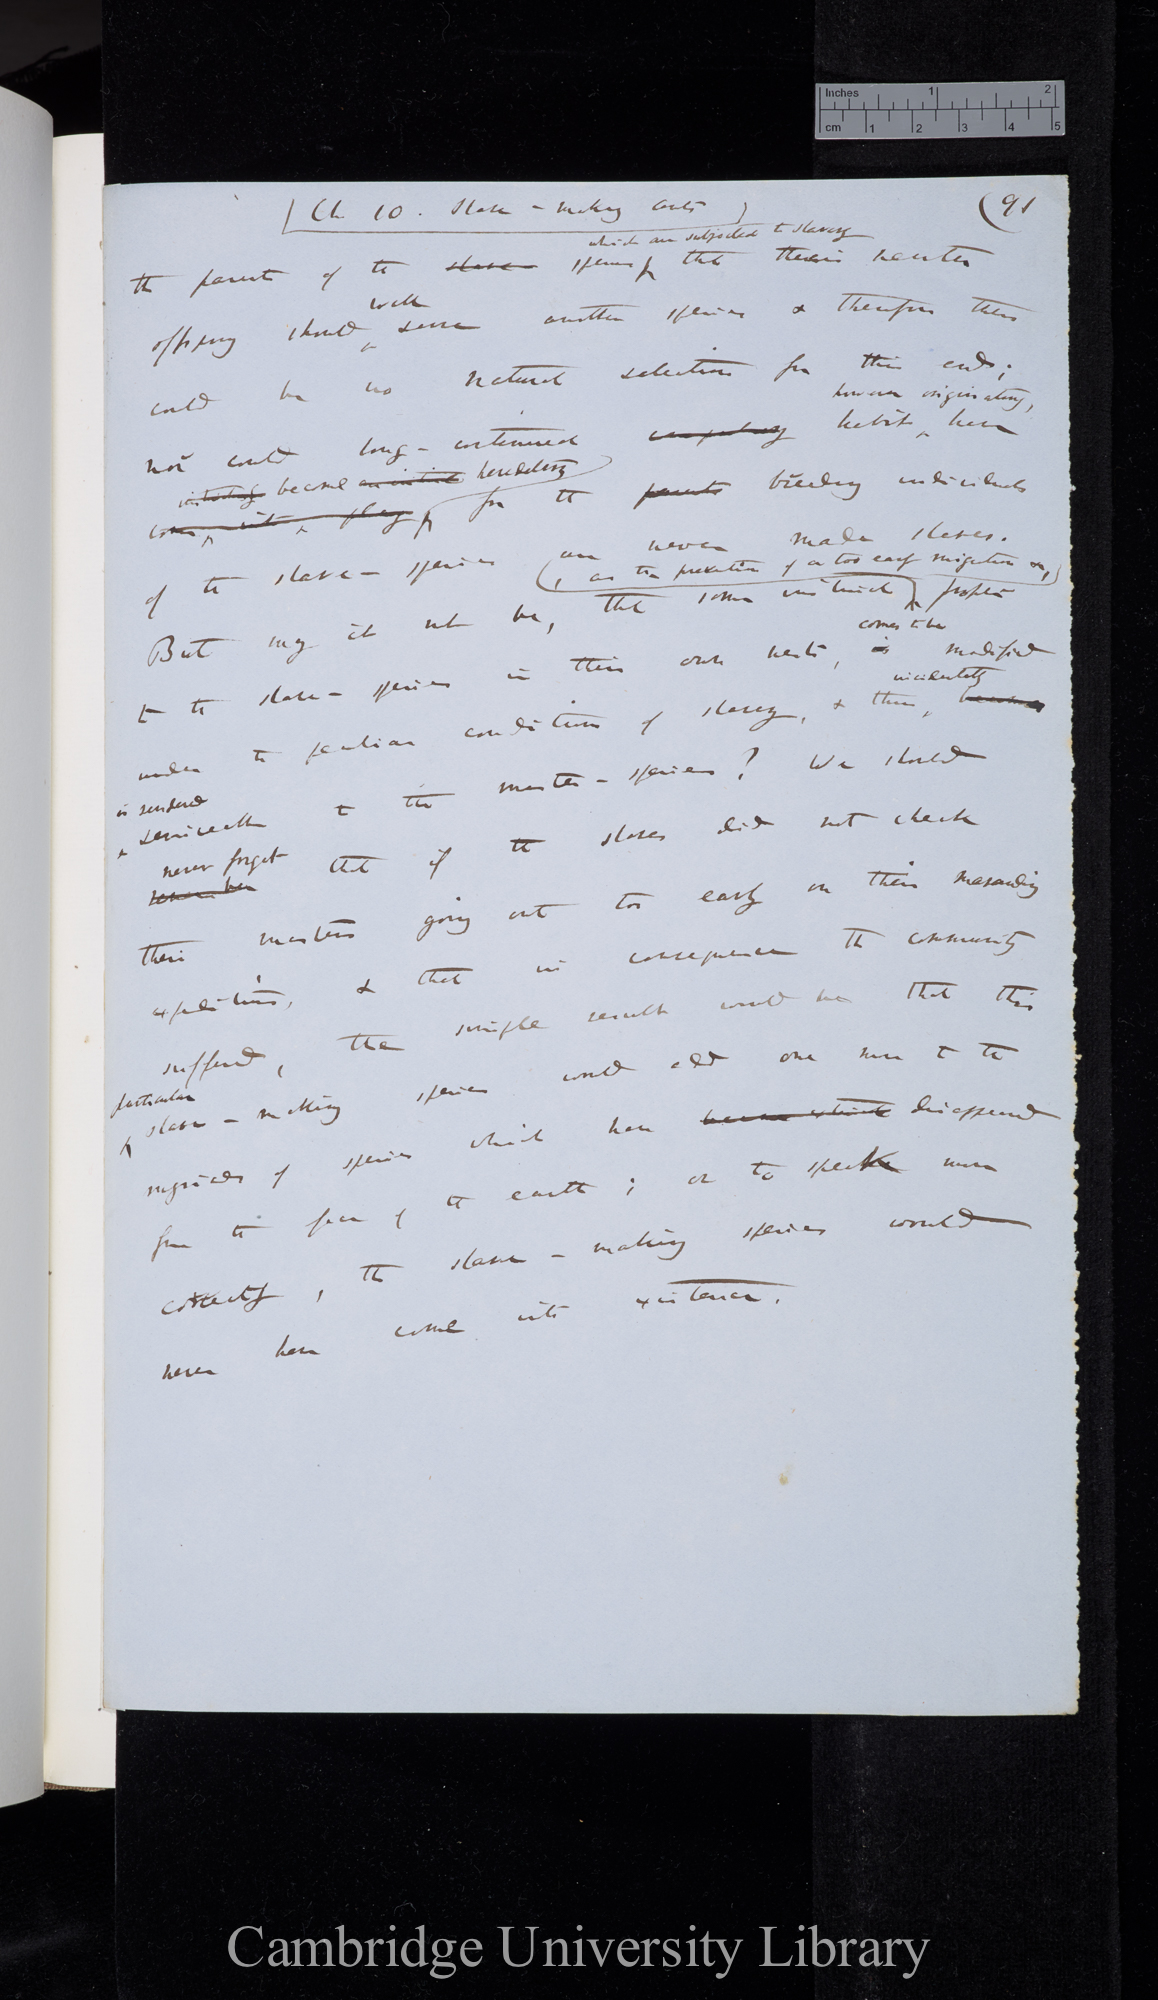 Inches 1 2
cm 1 2 3 4 5
Ch 10. Slave-making ants
(91
which are subjected to slavery
the parent of the slave species that their neuter
work
offspring should serve another species & therefore there
could be no natural selection for this end;
however originating,
nor could long-continued compulsory habit, have
become an instinct hereditary
come into play, for the parents breeding individuals
of the slave-species are never made slaves.
as the prevention of a too early migration &c,
But may it not be, that some instinct proper
comes to be
to the slave-species in their own nests, is modified
incidentally
under the peculiar conditions of slavery, & thus,
is rendered
serviceable to the master-species? We should
never forget
remember that if the slaves did not check
their masters going out too early on their marauding
expeditions, & that in consequence the community
suffered, the simple result would be that this
particular
slave-making species would add one more to the
myriads of species which have become extinct disappeared
from the face of the earth; or to speak more
correctly, the slave-making species would
never have come into existence.
Cambridge University Library